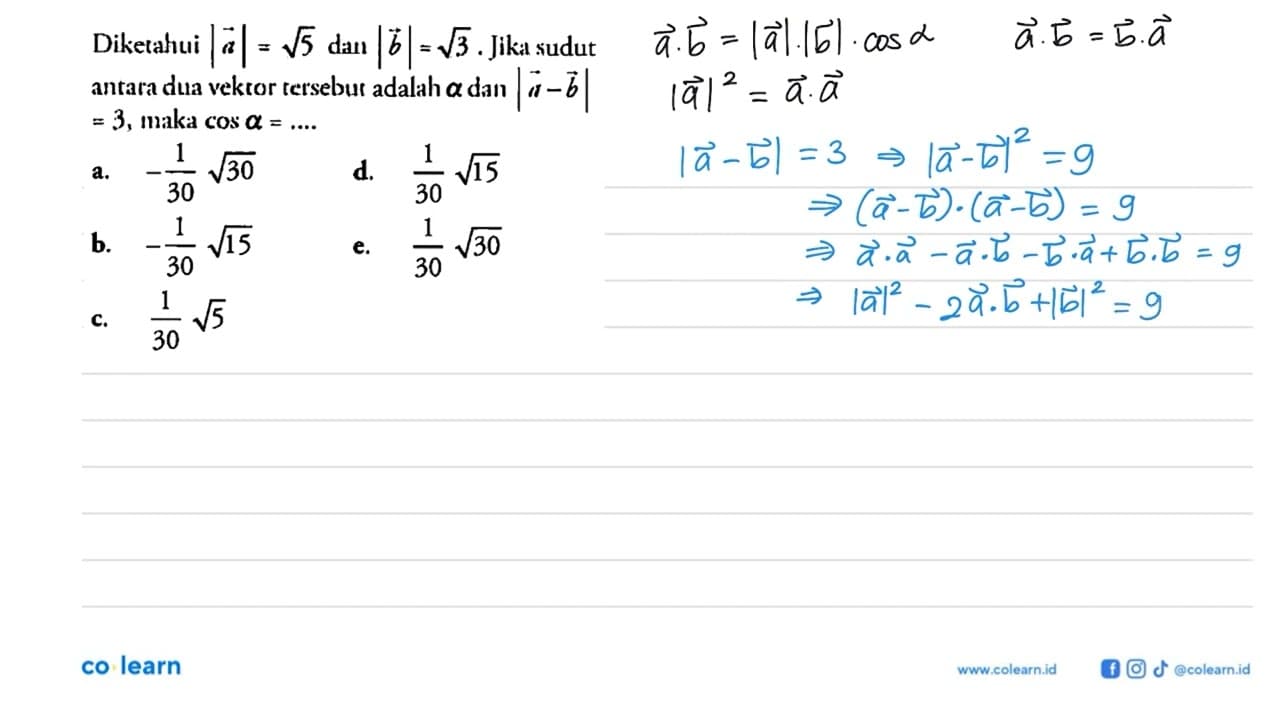 Diketahui |a⃗| = √5 dan |b⃗| = √3. Jika sudut
antara dua vektor tersebut adalah α dan |a⃗ − b⃗|
= 3, maka cos α = ....
a. −1/30 √30
d. 1/30 √15
b. −1/30 √15
e. 1/30 √30
c. 1/30 √5
a⃗.b⃗ = |a⃗|.|b⃗|.cos α
a⃗.b⃗ = b⃗.a⃗
|a⃗|² = a⃗.a⃗
|a⃗ − b⃗| = 3 ⇒ |a⃗ − b⃗|² = 9
⇒ (a⃗ − b⃗).(a⃗ − b⃗) = 9
⇒ a⃗.a⃗ − a⃗.b⃗ − b⃗.a⃗ + b⃗.b⃗ = 9
⇒ |a⃗|² − 2a⃗.b⃗ + |b⃗|² = 9
co learn
www.colearn.id
@colearn.id